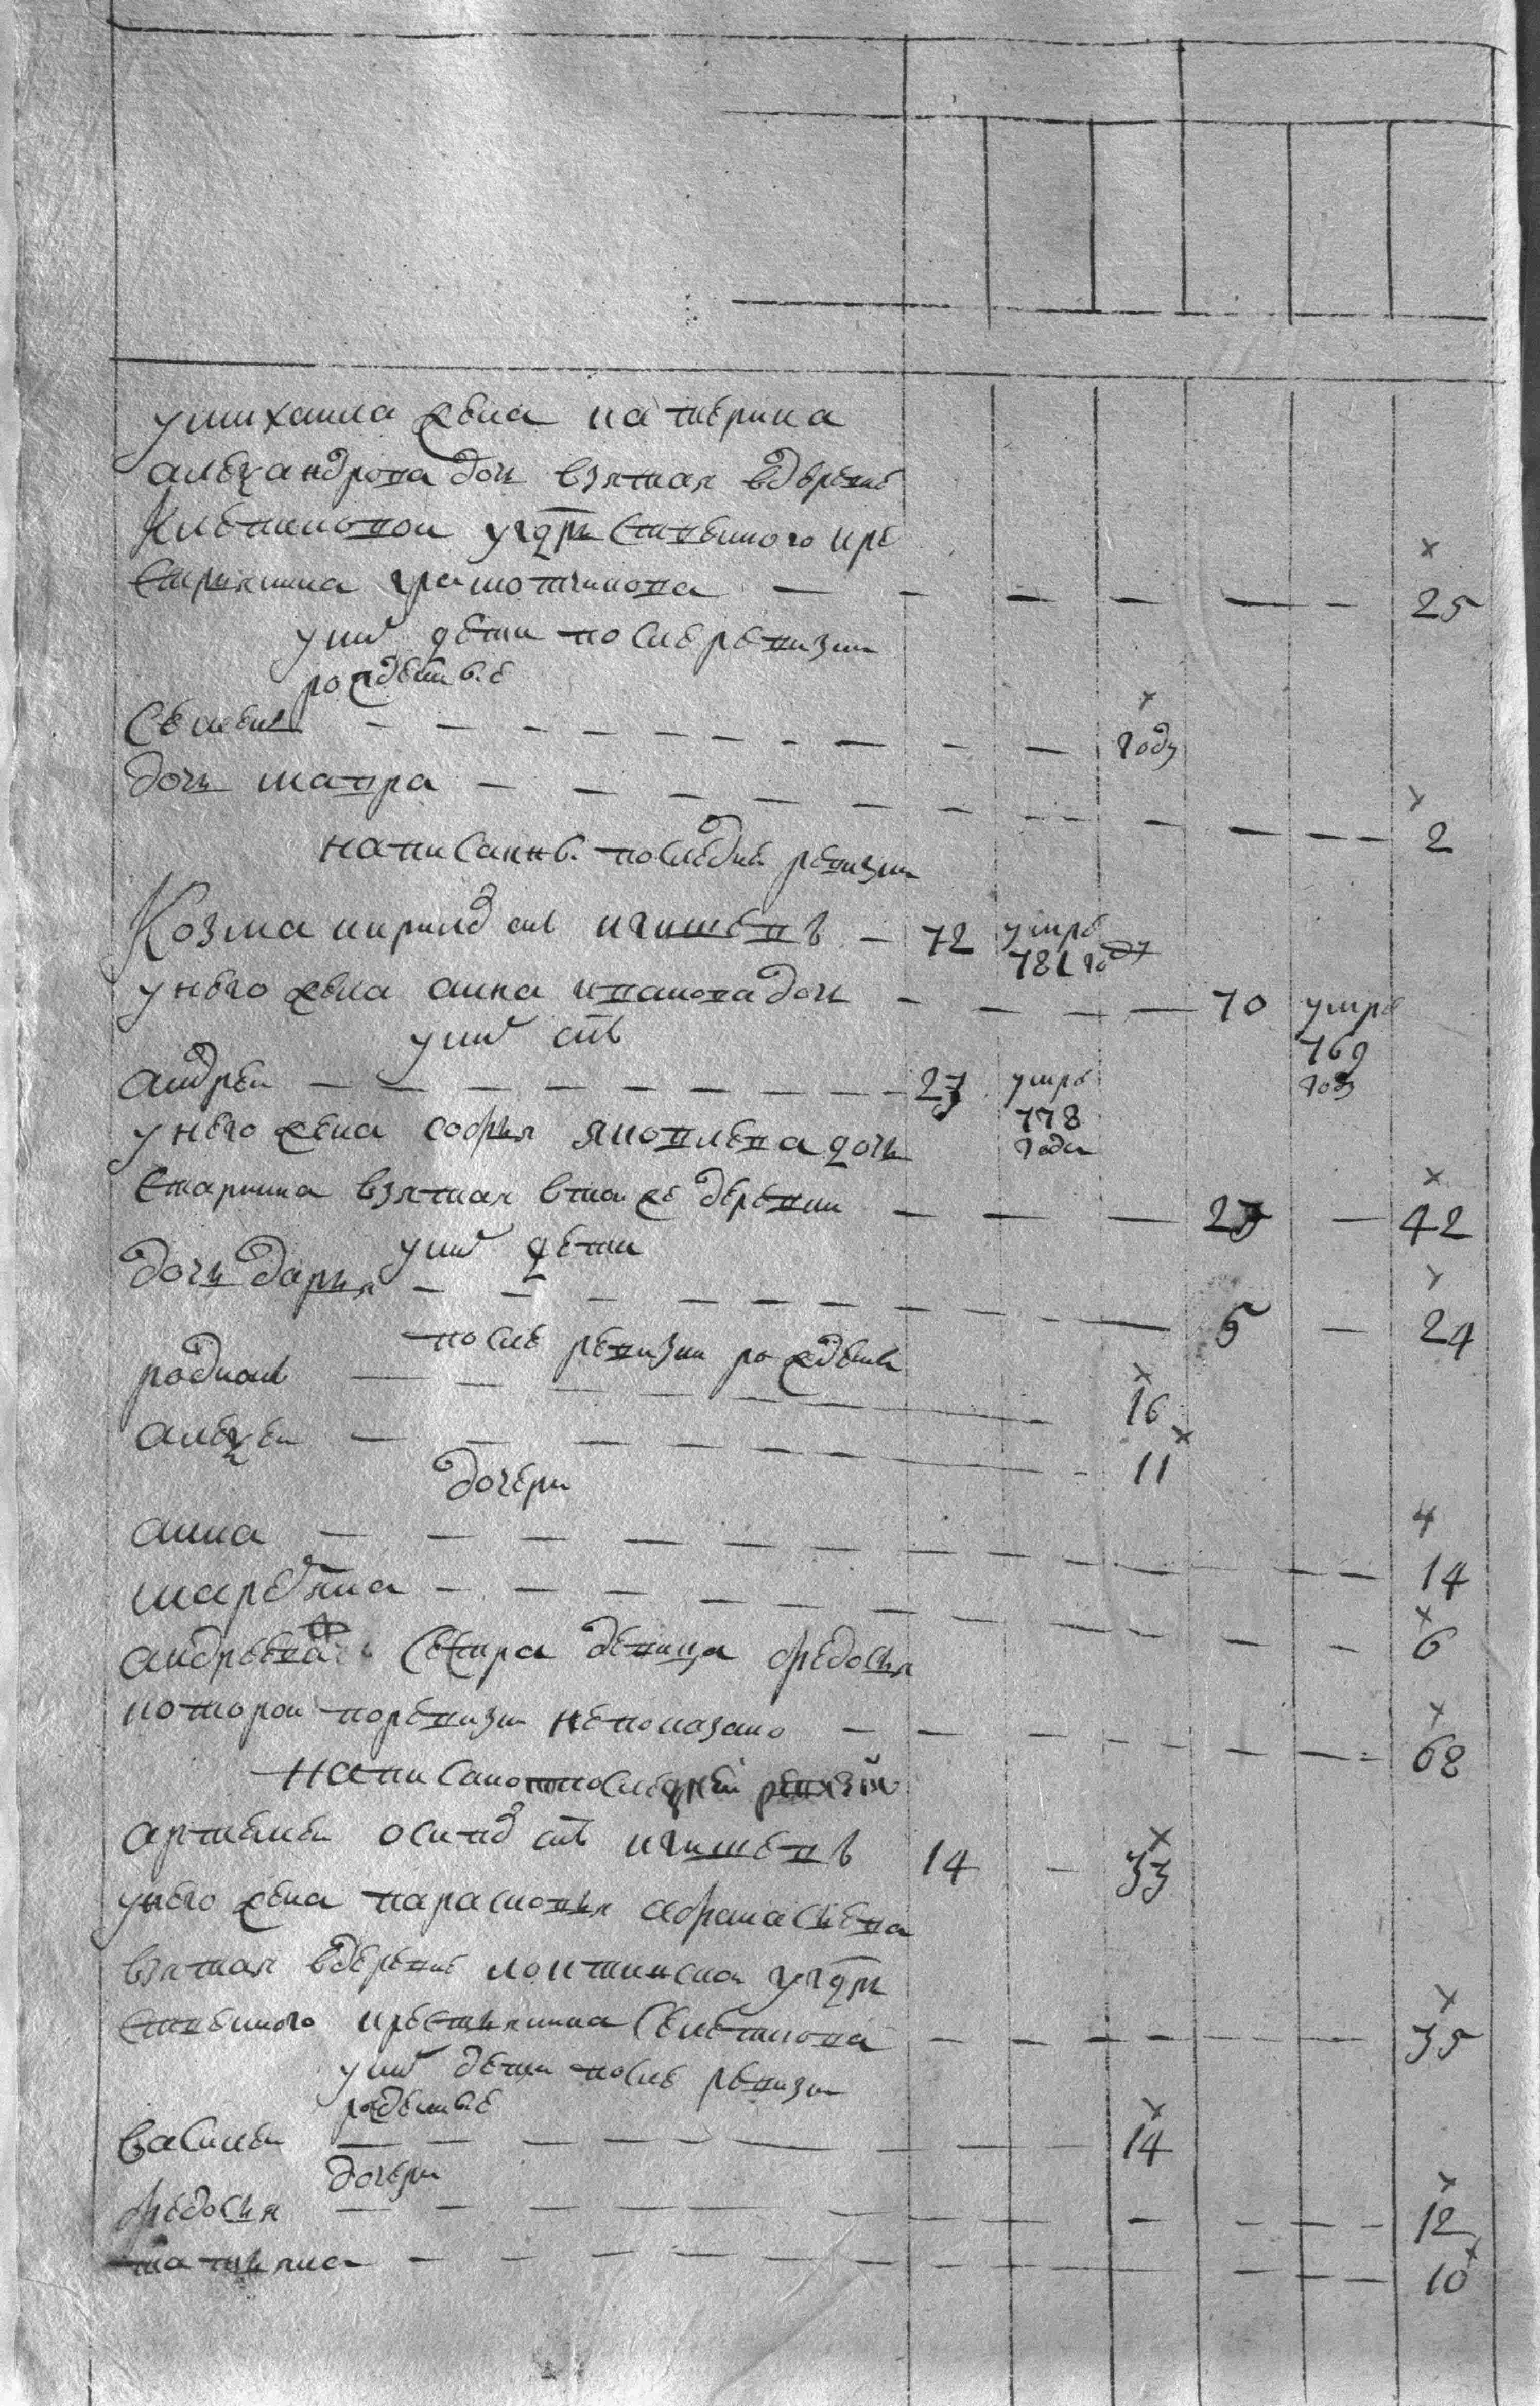 у михаила жена катерина
алеѯандрова дочь взятая вдеревне
Клепиковой угдрственного кре
стьянина грамотчикова — — — — — — 25
у них дети после ревизии
рожденные
Семенъ — — — — — — — — году
дочь мавра — — — — — — — — 2
написанны в последней ревизии
Козма кирилов снъ игишевъ — 72 умре 781 году
у него жена анна иванова дочь — — — — 70 умре 769 году
у них снъ
андрей — — — — — — — 23 умре 778 года
у него жена софья яковлева дочь
старинна взятая втой же деревни — — — 23 — 42
у них дети
дочь дарья — — — — — — — — 5 — 24
после ревизии рожденны
родионъ — — — — — 16
алеѯей — — — — — 11
дочери
анна — — — — — — — — 14
маремьяна — — — — — — — — 6
андреева сестра девица федосья
которой поревизии непоказано — — — — — — 68
написанной последней ревизии
артемей осипов снъ игишевъ 14 — 33
у него жена парасковья афанасьева
взятая вдеревне угдрь
ственного крестьянина Селеткова — — — — — — 35
у них дети после ревизии
рожденные
василей — — — — — — — 14
дочери
федосья — — — — — — — — 12
татьяна — — — — — — — — 10